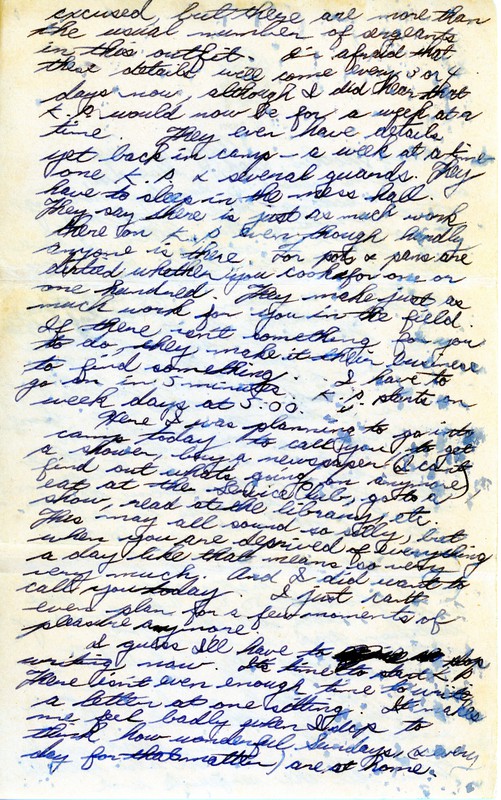 excused, but there are more than
the usual number of sergeants
in this outfit. I'm afraid that
these details will come every 3 or 4
days now, although I did hear that
K.P. would now be for a week at a
time. They even have details
yet back in camp - a week at a time
one K.P. & several guards. They
have to sleep in the mess hall.
They say there is just as much work
there on K.P. even though hardly
anyone is there. For pots & pans are
dirtied whether you cook for one or
one hundred. They make just as
much work for you in the field.
If there isn't something for you
to do, they make it their business
to find something. I have to
go on in 5 minutes. K.P. starts on
week days at 5:00.
Here I was planning to go into
camp today to call you, to get
a shower, buy a newspaper (I can't
find out what's going on anymore)
eat at the Service Club, go to a
show, read at the library, etc.
This may all sound so silly, but
when you are deprived of everything
a day like that means so very
very much. And I did want to
call you today. I just can't
even plan for a few moments of
pleasure anymore.
I guess I'll have to stop
writing now. It's time to start K.P.
There isn't even enough time to write
a letter at one sitting. It makes
me feel badly when I stop to
think how wonderful Sundays (& every
day for that matter) are at home.